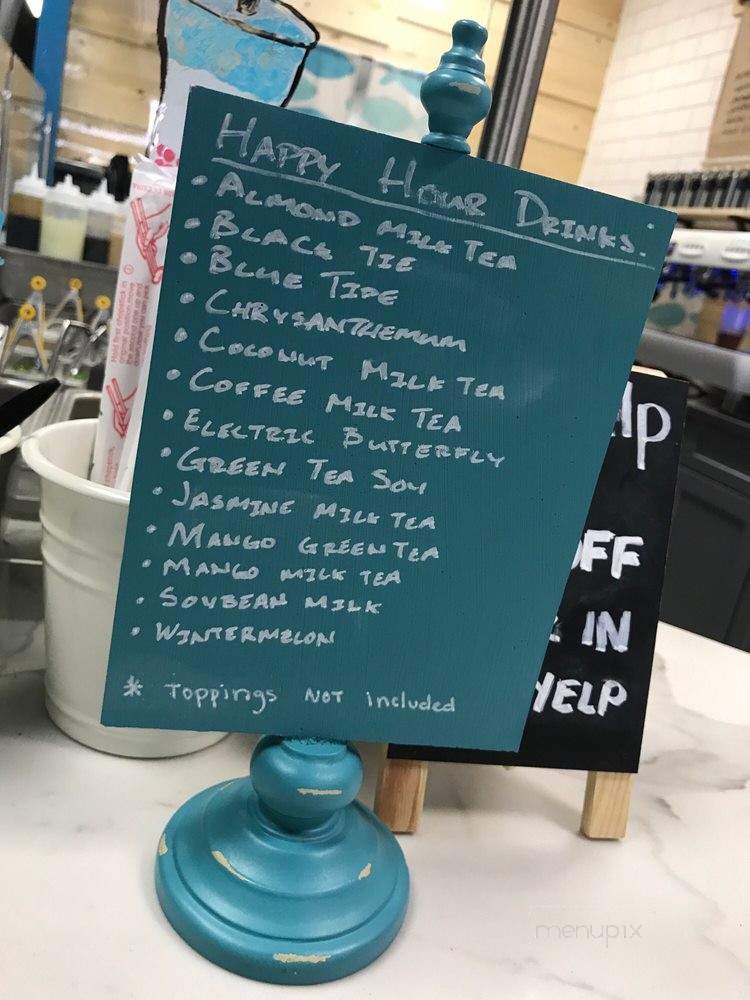 HAPPY HOUR DRINKS:
• ALMOND MILK TEA
• BLACK TIE
• BLUE TIDE
• CHRYSANTHEMUM
• COCONUT MILK TEA
• COFFEE MILK TEA
• ELECTRIC BUTTERFLY
• GREEN TEA SOY
• JASMINE MILK TEA
• MANGO GREEN TEA
• MANGO MILK TEA
• SOYBEAN MILK
• WINTERMELON
* Toppings NOT included
lp
OFF
IN
YELP
menupix